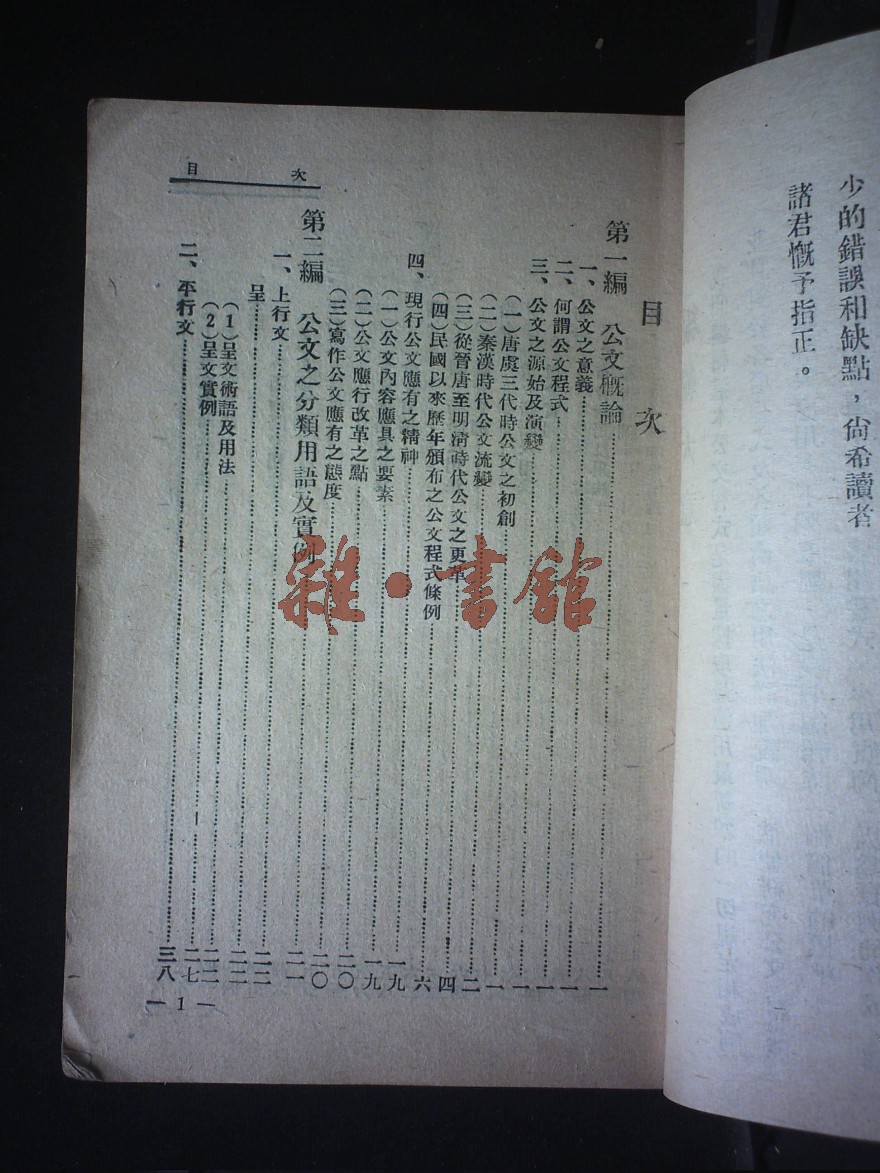 少的錯誤和缺點，尙希讀者
諸君慨予指正。
目次
第一編 公文概論……一
一、公文之意義……一
二、何謂公文程式……一
三、公文之源始及演變……一
（一）唐虞三代時公文之初創……一
（二）秦漢時代公文流變……二
（三）從晉唐至明清時代公文之更革……四
（四）民國以來歷年頒布之公文程式條例……六
四、現行公文應有之精神……一九
（一）公文內容應具之要素……一九
（二）公文應行改革之點……二〇
（三）寫作公文應有之態度……二〇
第二編 公文之分類用語及實例……二一
一、上行文……二二
呈……二二
（1）呈文術語及用法……二二
（2）呈文實例……二七
二、平行文……三八
目次
— 1 —
雜·書館